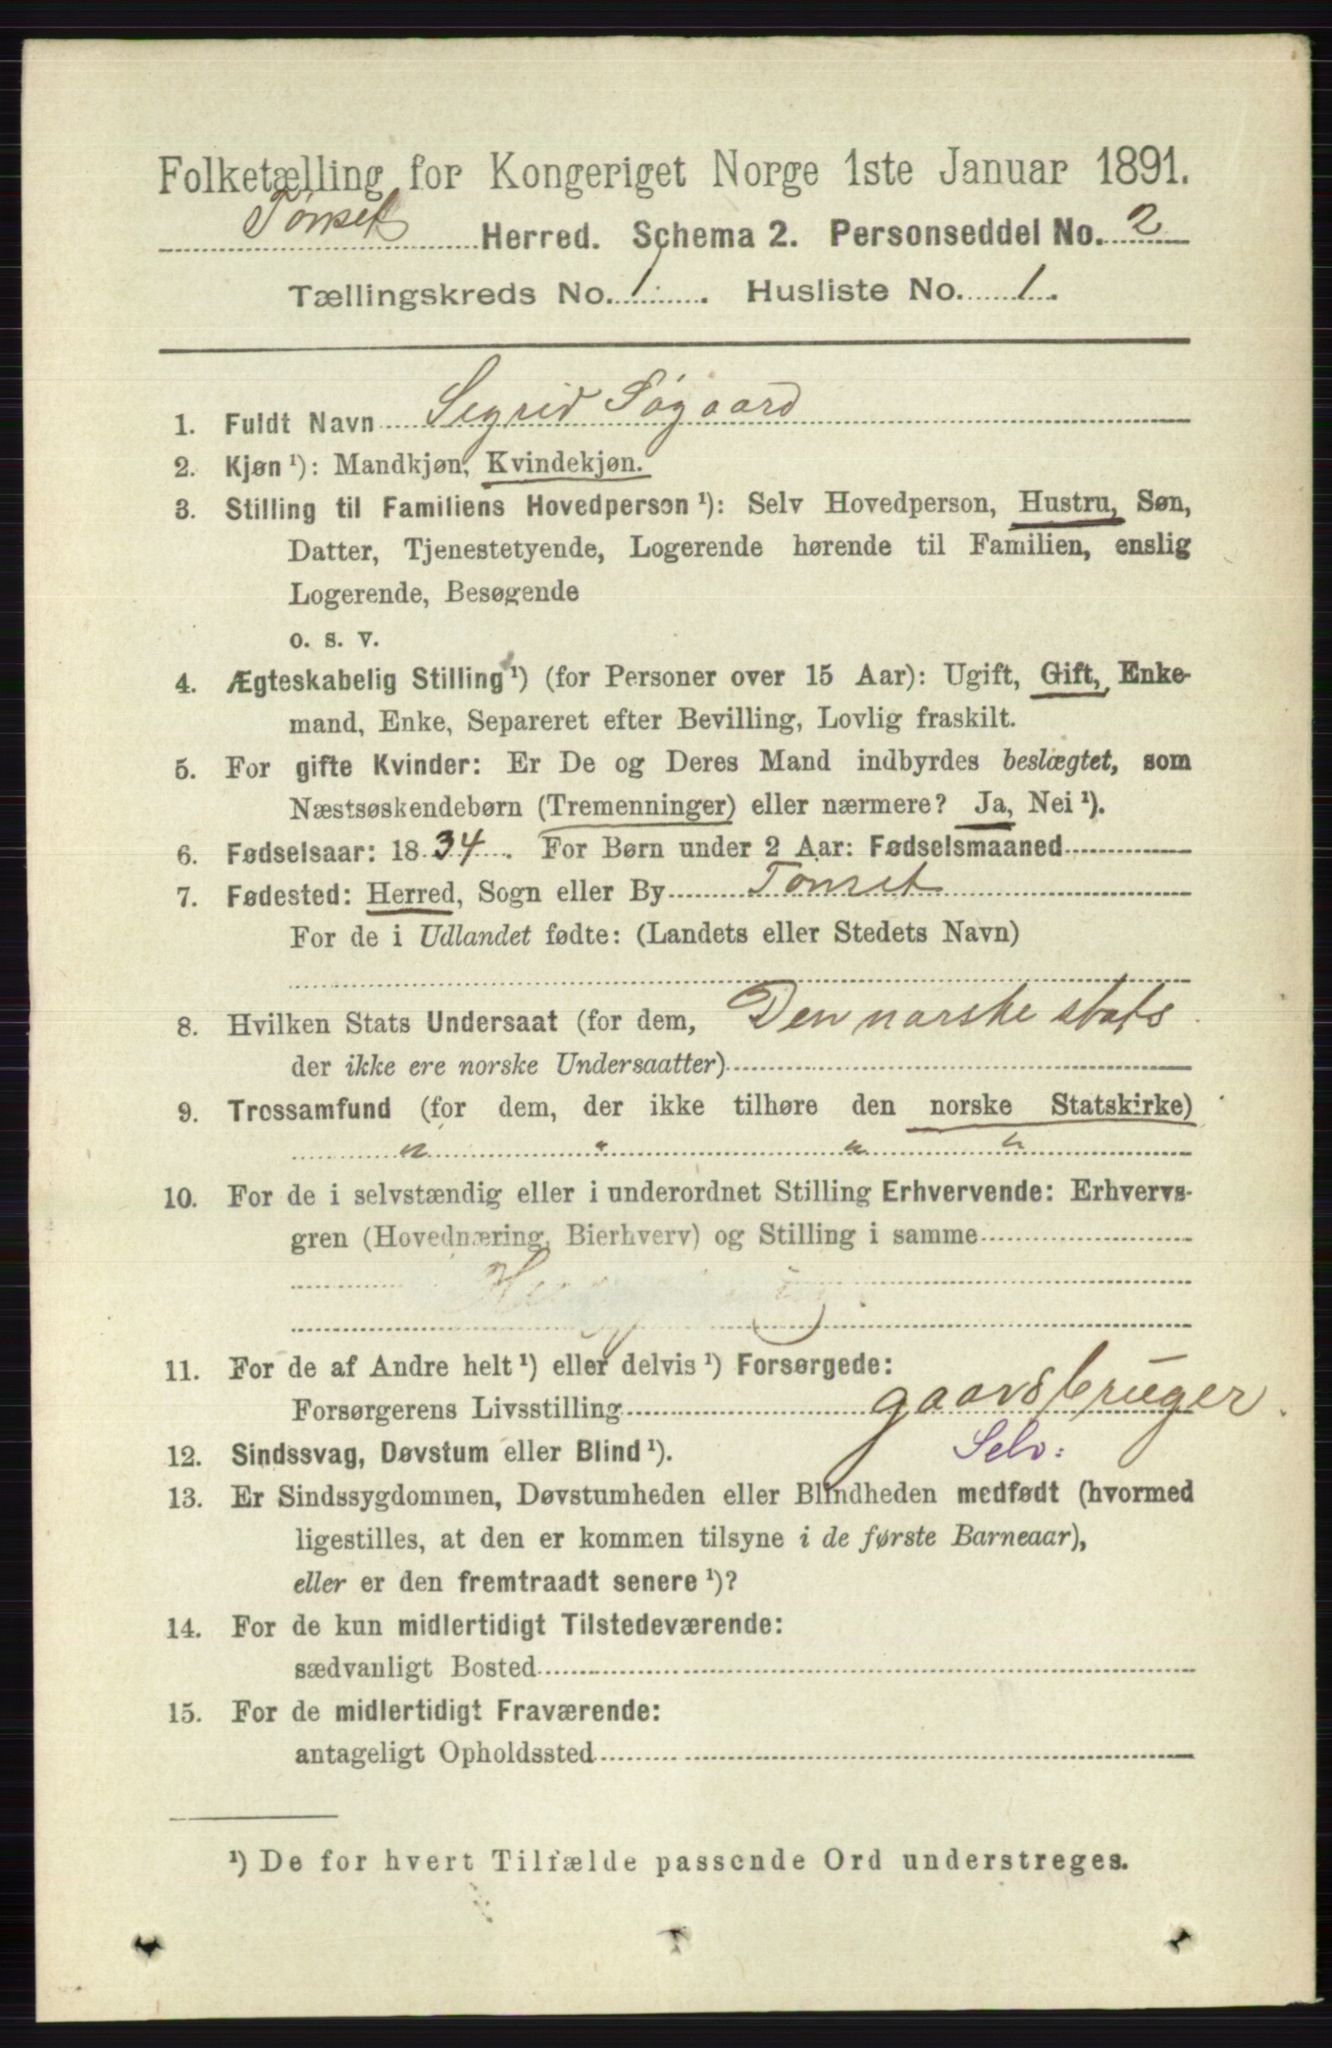 Folketælling for Kongeriget Norge 1ste Januar 1891.
Tønset Herred. Schema 2. Personseddel No. 2
Tællingskreds No. 1. Husliste No. 1.
1. Fuldt Navn Segrid Søgaard
2. Kjøn ¹): Mandkjøn, Kvindekjøn.
3. Stilling til Familiens Hovedperson ¹): Selv Hovedperson, Hustru, Søn,
Datter, Tjenestetyende, Logerende hørende til Familien, enslig
Logerende, Besøgende
o. s. v.
4. Ægteskabelig Stilling ¹) (for Personer over 15 Aar): Ugift, Gift, Enke-
mand, Enke, Separeret efter Bevilling, Lovlig fraskilt.
5. For gifte Kvinder: Er De og Deres Mand indbyrdes beslægtet, som
Næstsøskendebørn (Tremenninger) eller nærmere? Ja, Nei ¹).
6. Fødselsaar: 1834. For Børn under 2 Aar: Fødselsmaaned
7. Fødested: Herred, Sogn eller By Tønset
For de i Udlandet fødte: (Landets eller Stedets Navn)
8. Hvilken Stats Undersaat (for dem, Den norske stats
der ikke ere norske Undersaatter)
9. Trossamfund (for dem, der ikke tilhøre den norske Statskirke)
" " " "
10. For de i selvstændig eller i underordnet Stilling Erhvervende: Erhvervs-
gren (Hovednæring, Bierhverv) og Stilling i samme
11. For de af Andre helt ¹) eller delvis ¹) Forsørgede:
Forsørgerens Livsstilling gaardsbruger.
12. Sindssvag, Døvstum eller Blind ¹). Selv:
13. Er Sindssygdommen, Døvstumheden eller Blindheden medfødt (hvormed
ligestilles, at den er kommen tilsyne i de første Barneaar),
eller er den fremtraadt senere ¹)?
14. For de kun midlertidigt Tilstedeværende:
sædvanligt Bosted
15. For de midlertidigt Fraværende:
antageligt Opholdssted
¹) De for hvert Tilfælde passende Ord understreges.